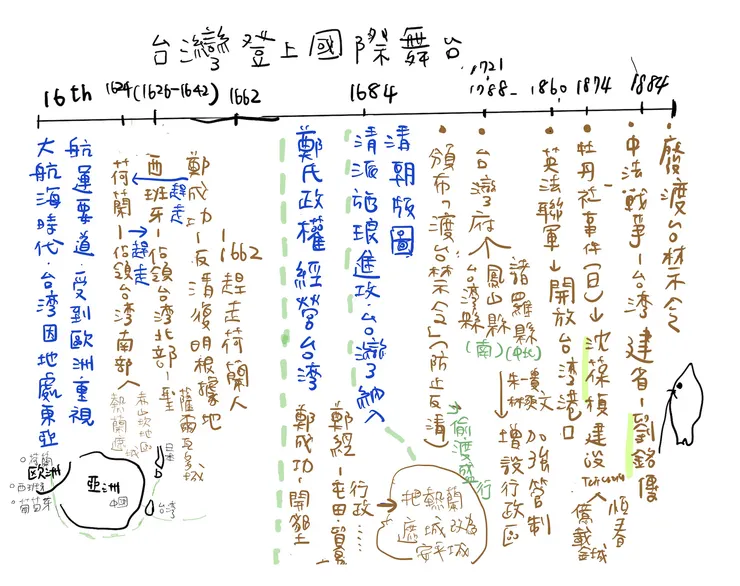 台灣登上國際舞台
16th
1624
(1626-1642)
1662
1684
1721
1788-
1860.
1874
1884
大航海時代·台湾因地處東亞
航運要道·受到歐洲重視
荷蘭-佔領台湾南部
熱蘭遮城
趕走
西班牙-佔領台湾北部-聖
薩爾瓦多城
趕走
鄭成功-反清復明根據地
1662趕走荷蘭人
歐洲
亞洲
中國
日本
台湾
荷蘭
西班牙
葡萄牙
鄭氏政權經營台湾
鄭成功-開墾
鄭經-屯田·貿易
行政……
清派施琅進攻·台灣納入
清朝版圖
把熱蘭
遮城改為
安平城
頒布「渡台禁令」(防止反清)
→偷渡盛行
台灣府
台湾縣
(南)
鳳山縣
諸羅縣
(中北)
朱一貴
林爽文
增設行政區
加強管制
英法聯軍→開放台湾港口
牡丹社事件(日)→沈葆楨建設
億載金城
恆春
中法戰爭-台灣建省-劉銘傳
廢渡台禁令